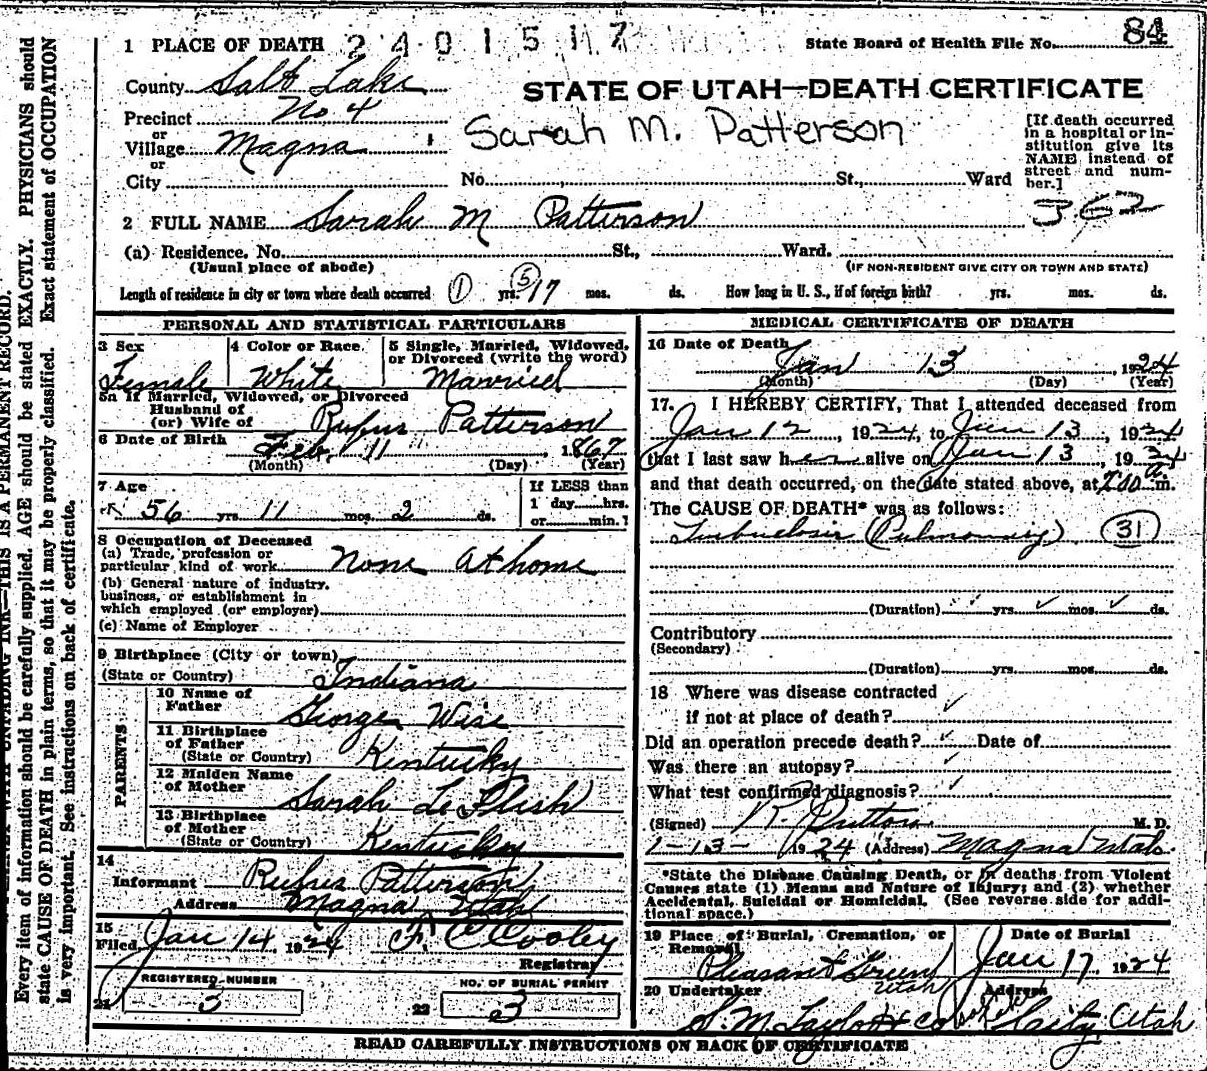 1 PLACE OF DEATH 2401517
State Board of Health File No. 84
County Salt Lake
STATE OF UTAH—DEATH CERTIFICATE
Precinct No 4
or
Village Magna
or
City
Sarah M. Patterson
No. St., Ward
[If death occurred
in a hospital or in-
stitution give its
NAME instead of
street and num-
ber.]
362
2 FULL NAME Sarah M Patterson
(a) Residence. No. St., Ward.
(Usual place of abode)
(IF NON-RESIDENT GIVE CITY OR TOWN AND STATE)
Length of residence in city or town where death occurred 1 yrs. 5 17 mos. ds. How long in U. S., if of foreign birth? yrs. mos. ds.
PERSONAL AND STATISTICAL PARTICULARS
3 Sex
Female
4 Color or Race
White
5 Single, Married, Widowed,
or Divorced (write the word)
Married
5a If Married, Widowed, or Divorced
Husband of
(or) Wife of Rufus Patterson
6 Date of Birth
Feb. 11, 1867
(Month) (Day) (Year)
7 Age
56 yrs. 11 mos. 2 ds.
If LESS than
1 day hrs.
or min.?
8 Occupation of Deceased
(a) Trade, profession or
particular kind of work None At home
(b) General nature of industry,
business, or establishment in
which employed (or employer)
(c) Name of Employer
9 Birthplace (City or town)
(State or Country) Indiana
PARENTS
10 Name of
Father George Wise
11 Birthplace
of Father
(State or Country) Kentucky
12 Maiden Name
of Mother Sarah Le Flish
13 Birthplace
of Mother
(State or Country) Kentucky
14
Informant Rufus Patterson
Address Magna Utah
15
Filed Jan 14 1924 F. C Cooley
Registrar
REGISTERED NUMBER
21 3
NO. OF BURIAL PERMIT
22 3
MEDICAL CERTIFICATE OF DEATH
16 Date of Death
Jan 13, 1924
(Month) (Day) (Year)
17. I HEREBY CERTIFY, That I attended deceased from
Jan 12, 1924, to Jan 13, 1924
that I last saw her alive on Jan 13, 1924
and that death occurred, on the date stated above, at 7:00 a. m.
The CAUSE OF DEATH* was as follows:
Tuberculosis (Pulmonary) 31
(Duration) yrs. mos. ds.
Contributory
(Secondary)
(Duration) yrs. mos. ds.
18 Where was disease contracted
if not at place of death?
Did an operation precede death? Date of
Was there an autopsy?
What test confirmed diagnosis?
(Signed) M. D.
1-13- 1924 (Address) Magna Utah.
*State the Disease Causing Death, or in deaths from Violent
Causes state (1) Means and Nature of Injury; and (2) whether
Accidental, Suicidal or Homicidal. (See reverse side for addi-
tional space.)
19 Place of Burial, Cremation, or
Removal
Pleasant Green
Utah
Date of Burial
Jan 17, 1924
20 Undertaker
S. M. Taylor & Co
Address
City Utah
READ CAREFULLY INSTRUCTIONS ON BACK OF CERTIFICATE
UNFADING INK—THIS IS A PERMANENT RECORD.
Every item of information should be carefully supplied. AGE should be stated EXACTLY. PHYSICIANS should
state CAUSE OF DEATH in plain terms, so that it may be properly classified. Exact statement of OCCUPATION
is very important. See instructions on back of certificate.